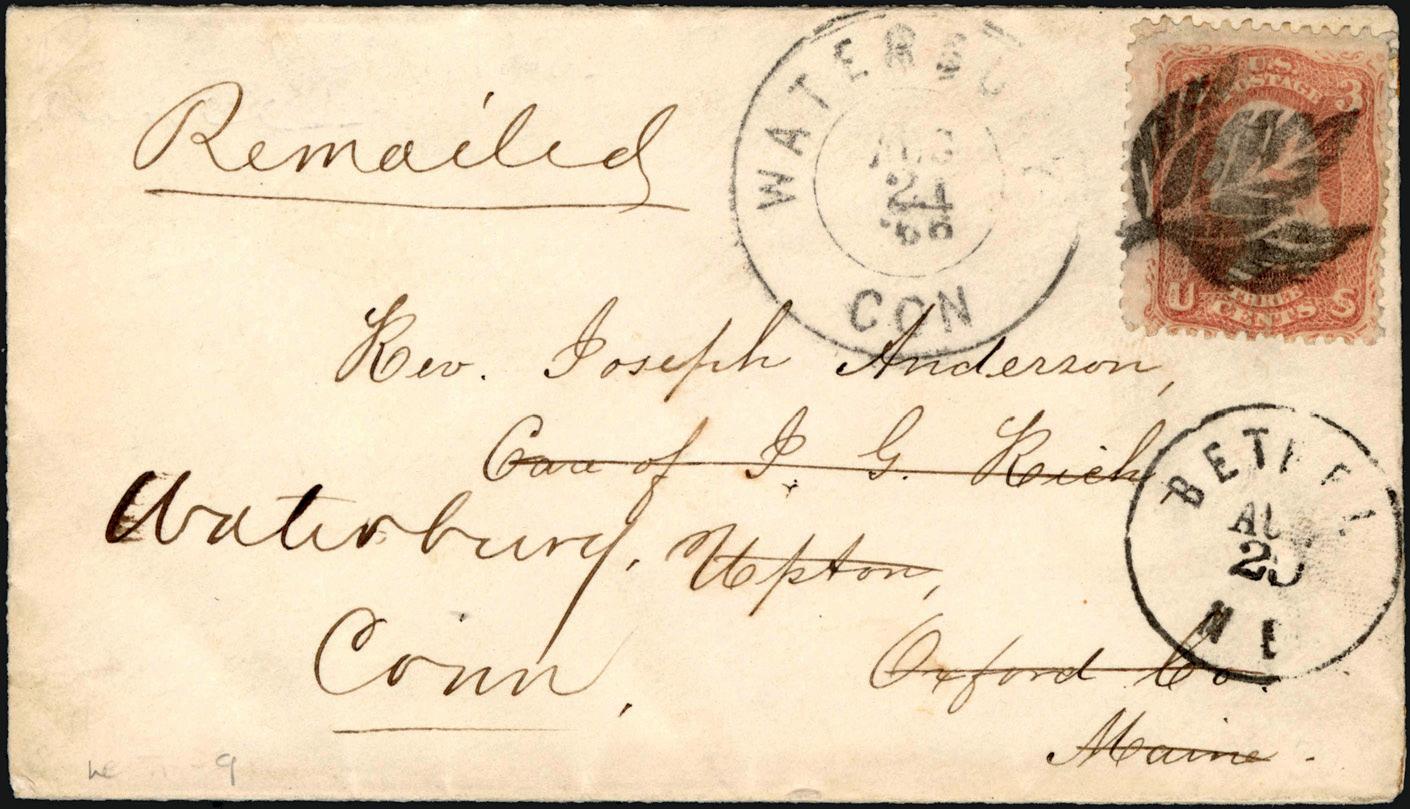 Remailed
WATERBU
AUG
24
'66
CON
U.S.
POSTAGE
3
U
THREE
CENTS
S
Rev. Joseph Anderson,
Care of I. G. Rich
Waterbury, Upton,
Conn, Oxford Co.
Maine.
BETHEL
AUG
ME
9